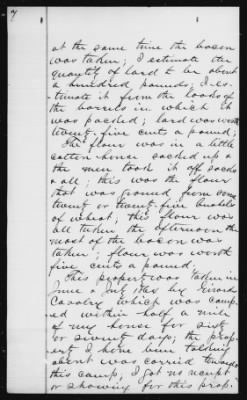 7
1
at the same time the bacon
was taken; I estimate the
quantity of lard to be about
a hundred pounds; I es-
timate it from the looks of
the barrels in which it
was packed; lard was worth
twenty-five cents a pound;
The flour was in a little
cotton house sacked up &
the men took it off sacks
& all; this was the flour
that was ground from some
twenty or twenty-five bushels
of wheat; this flour was
all taken the afternoon the
most of the bacon was
taken; flour was worth
five cents a pound;
This property was taken in
June & July 1864 by
Cavalry which was camp-
ed within half a mile
of my house for six
or seven days; the prop-
erty I have been talking
about was carried towards
this camp; I got no receipt
or showing for this prop-